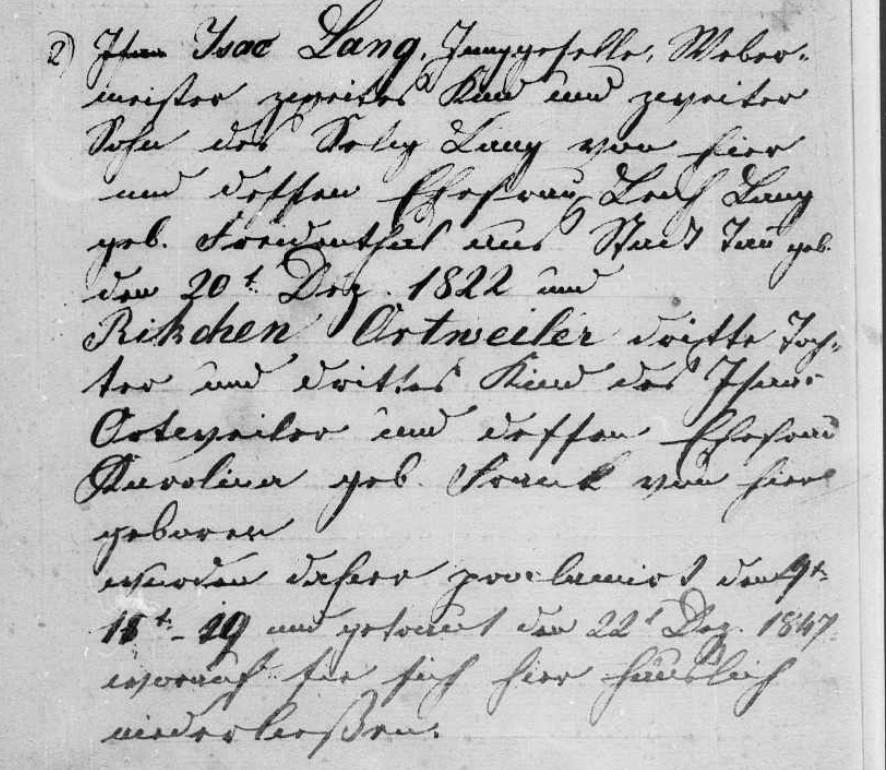 2) Isac Lang, Junggeselle, Weber-
meister zweites Kind und zweiter
Sohn des Selig Lang von hier
und dessen Ehefrau Leah Lang
geb. Freudenthal aus Stadt geb.
den 20t Dez. 1822 und
Rikchen Ortweiler dritte Toch-
ter und drittes Kind des Isaac
Ortweiler und dessen Ehefrau
Karolina geb. Frank von hier
geboren
wurden daher proclamirt den 4t
18t - 19 und getraut den 22t Dez. 1847
worauf sie sich hier häuslich
niederließen.